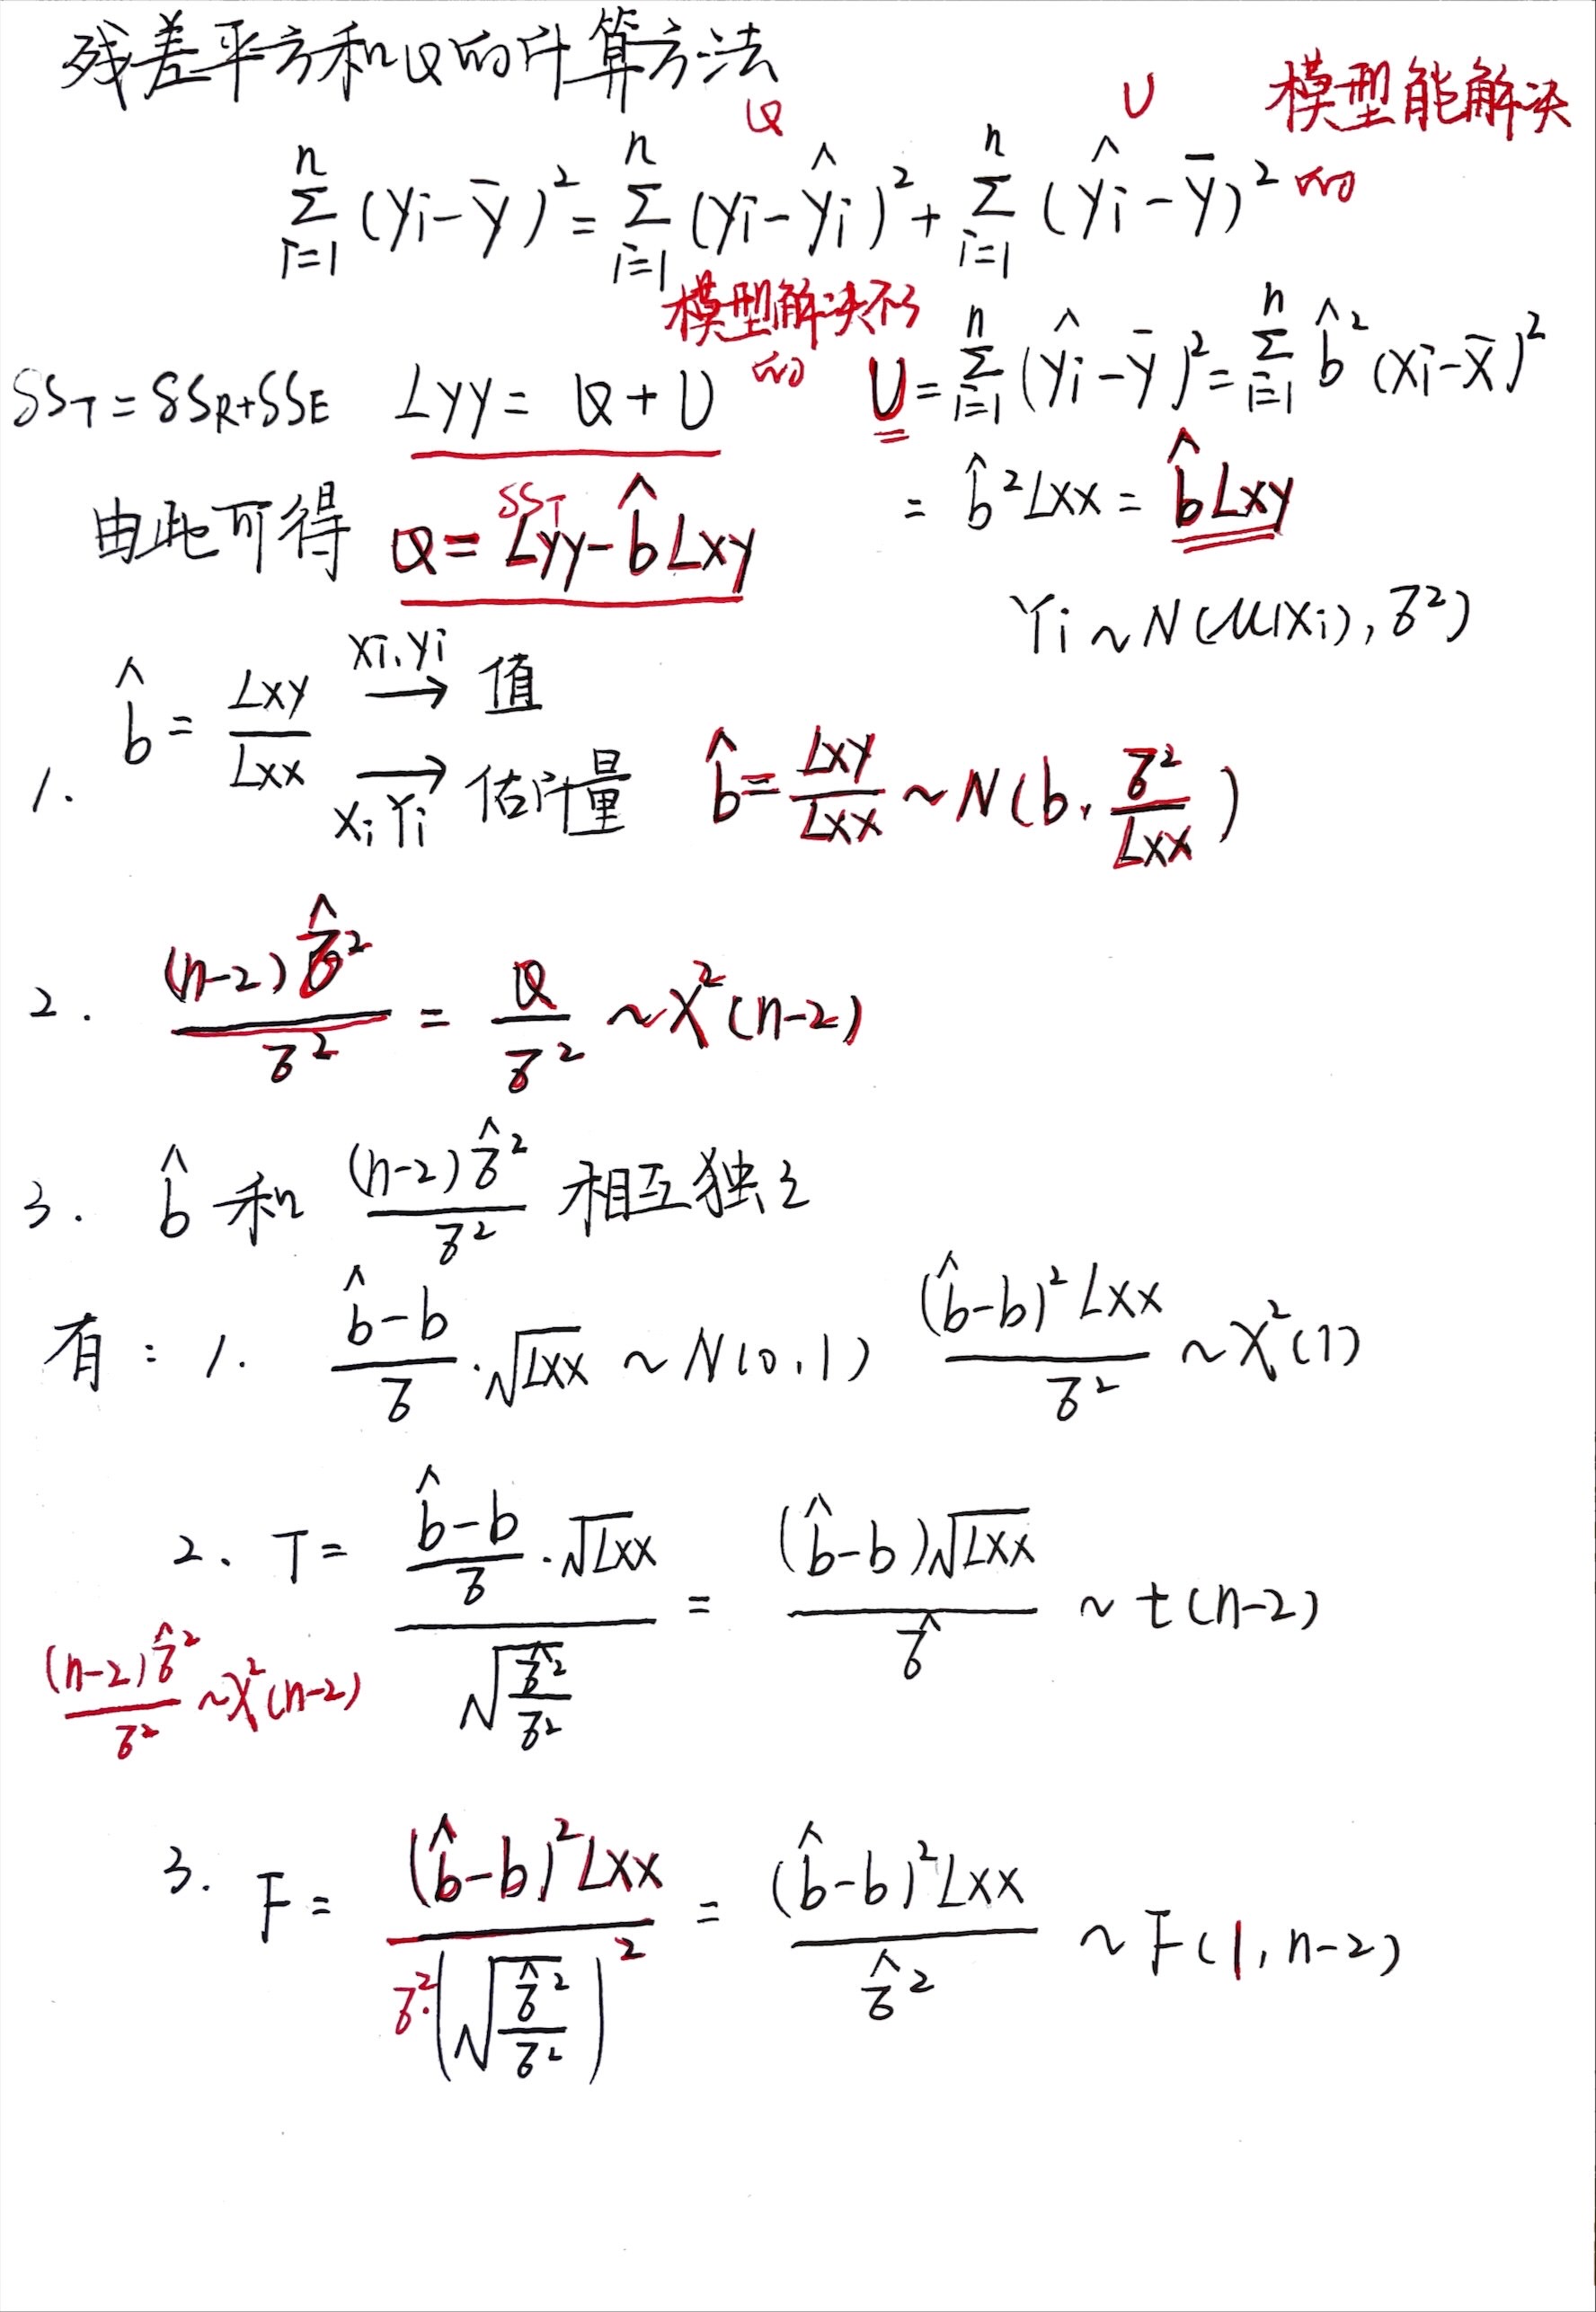 残差平方和Q的计算方法
Q U 模型能解决的
$\sum_{i=1}^{n}(y_i-\bar{y})^2=\sum_{i=1}^{n}(y_i-\hat{y}_i)^2+\sum_{i=1}^{n}(\hat{y}_i-\bar{y})^2$
模型解决不了的
$SS_T=SS_R+SS_E$ $Lyy=Q+U$ $U=\sum_{i=1}^{n}(\hat{y}_i-\bar{y})^2=\sum_{i=1}^{n}\hat{b}^2(x_i-\bar{x})^2$
$=\hat{b}^2Lxx=\hat{b}Lxy$
由此可得 $SS_T$ $Q=Lyy-\hat{b}Lxy$
$Y_i\sim N(\mu(x_i),\sigma^2)$
1. $\hat{b}=\frac{Lxy}{Lxx}$ $\xrightarrow{x_i,y_i}$ 值
$\xrightarrow[x_i Y_i]{}$ 估计量 $\hat{b}=\frac{Lxy}{Lxx}\sim N(b,\frac{\sigma^2}{Lxx})$
2. $\frac{(n-2)\hat{\sigma}^2}{\sigma^2}=\frac{Q}{\sigma^2}\sim\chi^2(n-2)$
3. $\hat{b}$ 和 $\frac{(n-2)\hat{\sigma}^2}{\sigma^2}$ 相互独立
有：1. $\frac{\hat{b}-b}{\sigma}\cdot\sqrt{Lxx}\sim N(0,1)$ $\frac{(\hat{b}-b)^2Lxx}{\sigma^2}\sim\chi^2(1)$
2、$T=\frac{\frac{\hat{b}-b}{\sigma}\cdot\sqrt{Lxx}}{\sqrt{\frac{\hat{\sigma}^2}{\sigma^2}}}=\frac{(\hat{b}-b)\sqrt{Lxx}}{\hat{\sigma}}\sim t(n-2)$
$\frac{(n-2)\hat{\sigma}^2}{\sigma^2}\sim\chi^2(n-2)$
3. $F=\frac{(\hat{b}-b)^2Lxx}{\sigma^2\cdot\left(\sqrt{\frac{\hat{\sigma}^2}{\sigma^2}}\right)^2}=\frac{(\hat{b}-b)^2Lxx}{\hat{\sigma}^2}\sim F(1,n-2)$